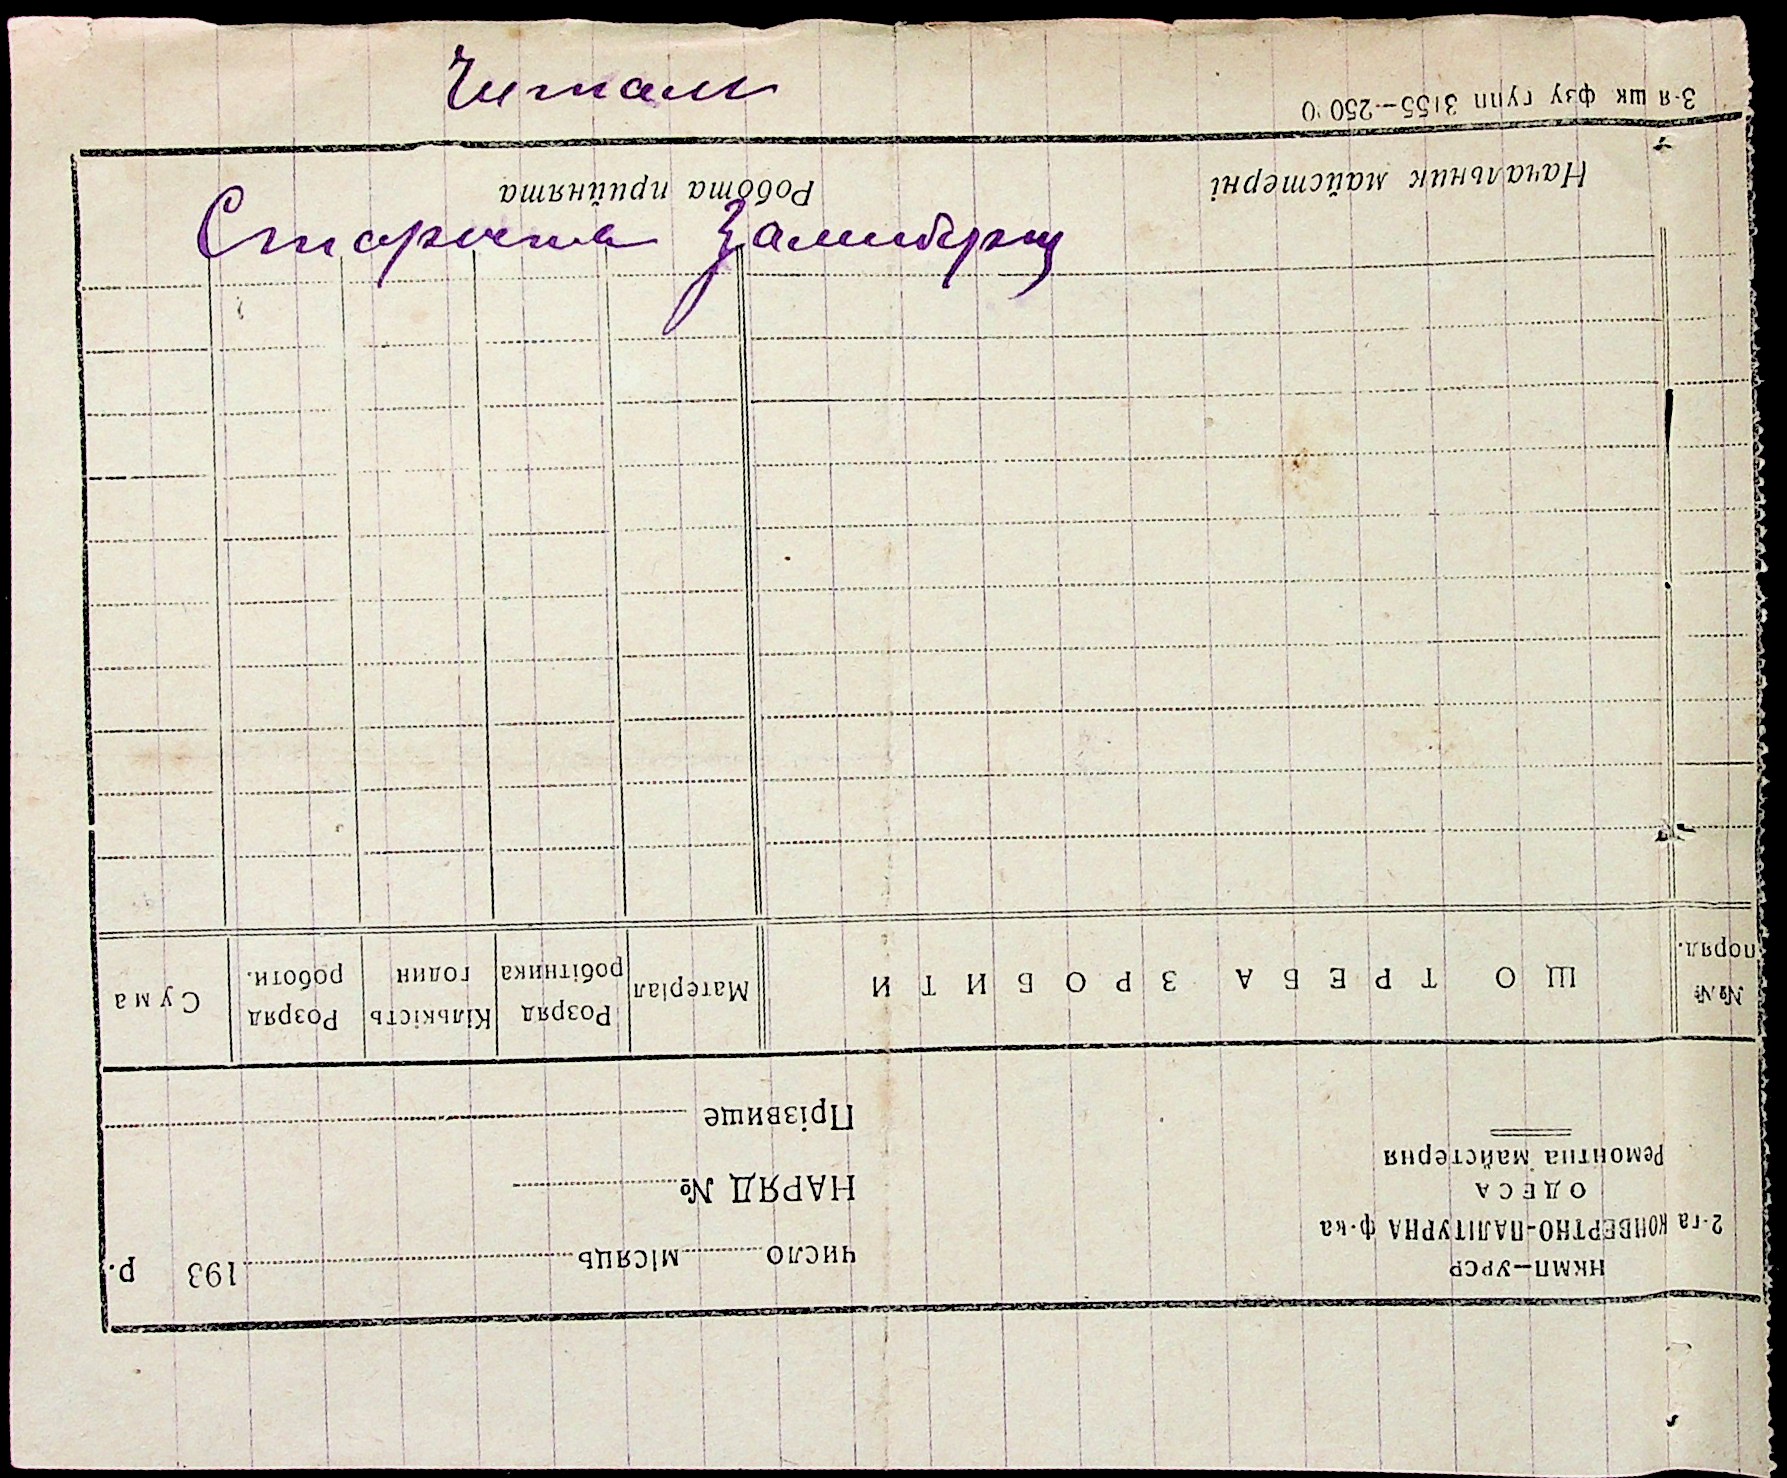 Читали
НКМП—УРСР
2-га КОНВЕРТНО-ПАЛІТУРНА ф-ка
ОДЕСА
Ремонтна майстерня
число місяць 193 р.
НАРЯД №
Прізвище
№№ поряд.
ЩО ТРЕБА ЗРОБИТИ
Матеріал
Розряд робітника
Кількість годин
Розряд роботи.
Сума
Начальник майстерні
Робота прийнята
3-я шк фзу гупп 3155—250